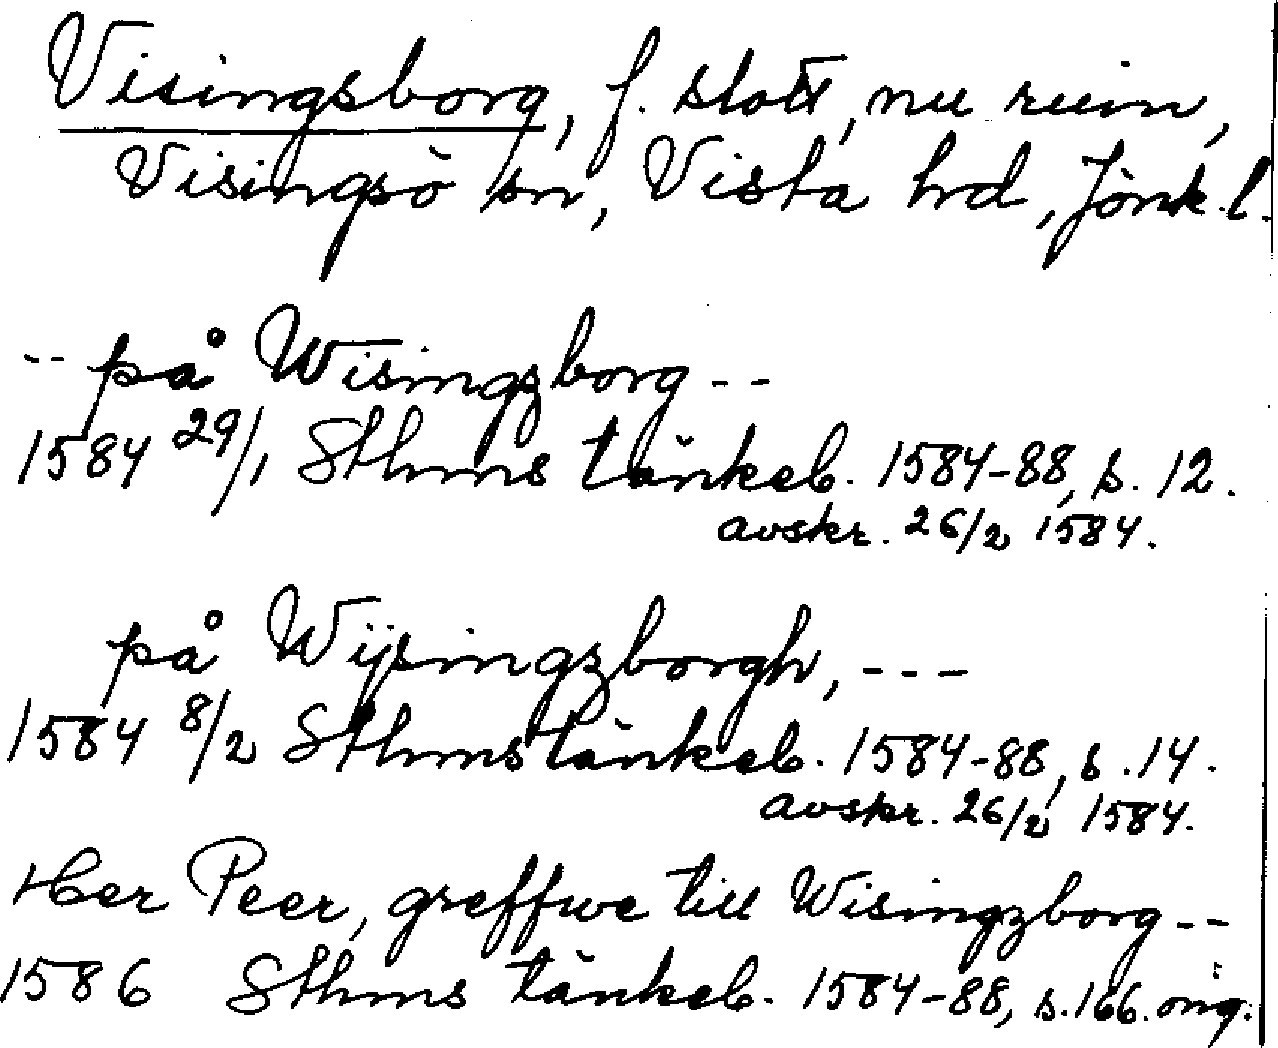 Visingsborg, f. slott, nu ruin,
Visingsö sn, Vista hd, Jönk.l.
-- på Wisingzborg --
1584 29/1 Sthms tänkeb. 1584-88, s. 12.
avskr. 26/2 1584.
på Wijsingzborgh, ---
1584 8/2 Sthms tänkeb. 1584-88, s. 14.
avskr. 26/2 1584.
Her Peer, greffwe till Wisingzborg --
1586 Sthms tänkeb. 1584-88, s. 166. orig.